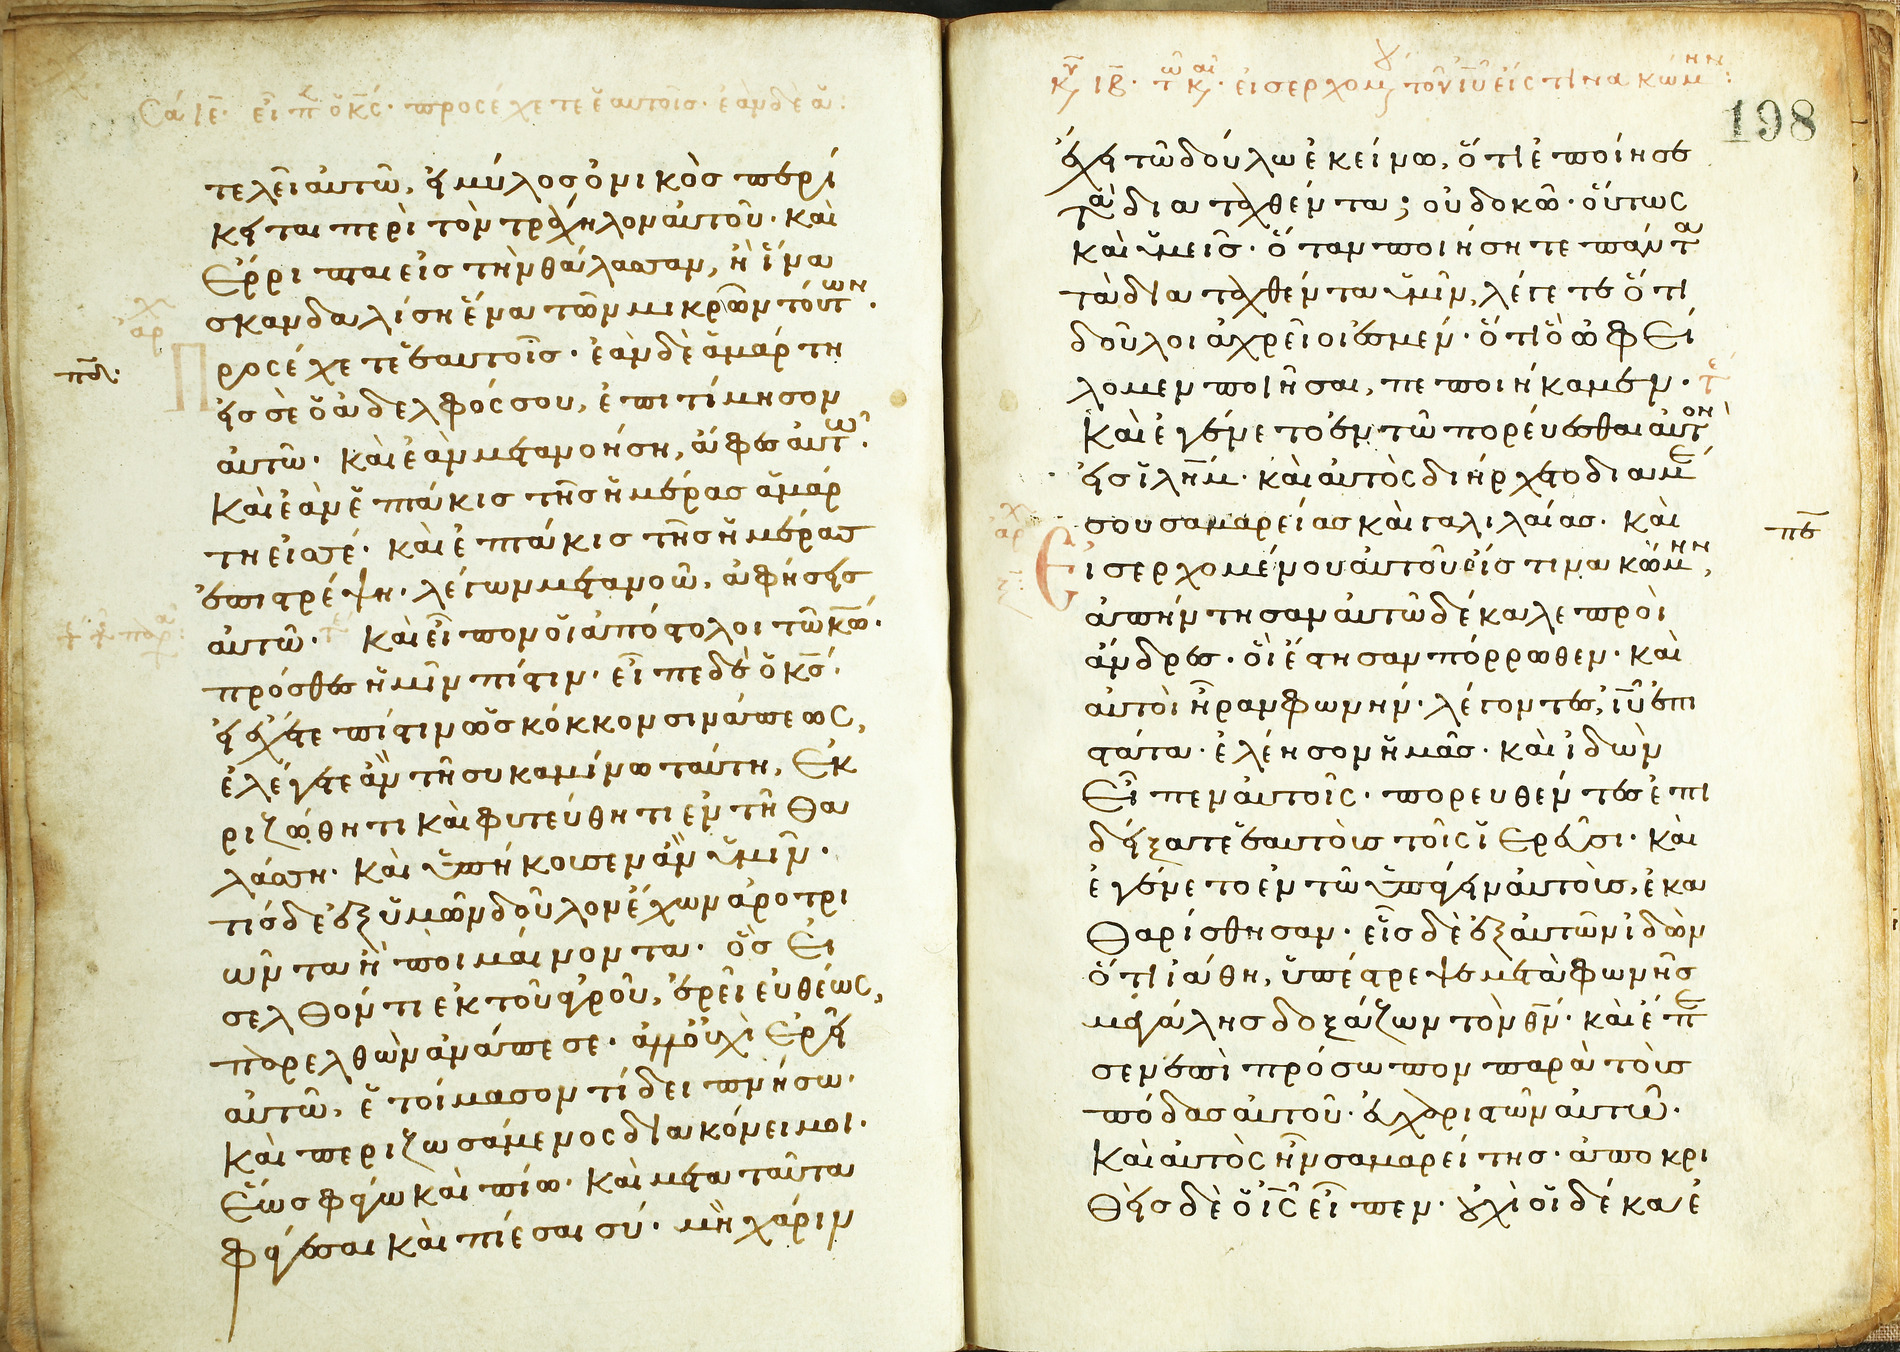 Σά ιε. εἶπ ὁ κς. προσέχετε ἑαυτοῖς. ἐὰν δὲ ἁ:
τελεῖ αυτῶ, εἰ μύλος ὀνικὸς περί
κειται περὶ τὸν τράχηλον αυτοῦ. καὶ
ἔρριπται εἰς τὴν θάλασσαν, ἢ ἵνα
σκανδαλίση ἕνα τῶν μικρῶν τούτων.
χ
ἀρ
Προσέχετε ἑαυτοῖς. ἐὰν δὲ ἁμάρτη
εἰς σὲ ὁ ἀδελφός σου, ἐπιτίμησον
αὐτῶ. καὶ ἐὰν μετανοήση, ἄφες αὐτῶ.
Καὶ ἐὰν ἑπτάκις τῆς ἡμέρας ἁμάρ
τη εἰς σέ. καὶ ἑπτάκις τῆς ἡμέρας
ἐπιστρέψη. λέγων μετανοῶ, ἀφήσεις
αὐτῶ. τε Καὶ εἶπον οἱ ἀπόστολοι τῶ κω.
πρόσθες ἡμῖν πίστιν. εἶπε δὲ ὁ κς.
εἰ εἴχετε πίστιν ὡς κόκκον σινάπεως,
ἐλέγετε ἂν τῆ συκαμίνω ταύτη, ἐκ
ριζώθητι καὶ φυτεύθητι ἐν τῆ θα
λάσση. καὶ ὑπήκουσεν ἂν ὑμῖν.
τίς δὲ ἐξ ὑμῶν δοῦλον ἔχων ἀροτρι
ῶντα ἢ ποιμαίνοντα. ὃς εἰ
σελθόντι ἐκ τοῦ ἀγροῦ, ἐρεῖ εὐθέως,
παρελθὼν ἀνάπεσε. ἀλλ' οὐχὶ ἐρεῖ
αὐτῶ, ἑτοίμασον τί δειπνήσω.
Καὶ περιζωσάμενος διακόνει μοι.
ἕως φάγω καὶ πίω. Καὶ μετα ταῦτα
φάγεσαι καὶ πίεσαι σύ. μὴ χάριν
Κυ ιβ. τῶ και. εἰσερχομ τὸν ιυ εἰς τινα κώμην:
198
ἔχει τῶ δούλω ἐκείνω, ὅτι ἐποίησε
τὰ διαταχθέντα; οὐ δοκῶ. οὕτως
καὶ ὑμεῖς. ὅταν ποιήσητε πάντα
τὰ διαταχθέντα ὑμῖν, λέγετε ὅτι
δοῦλοι ἀχρεῖοι ἐσμέν. ὅτι ὃ ὠφεί
λομεν ποιῆσαι, πεποιήκαμεν. τε
Καὶ ἐγένετο ἐν τῶ πορεύεσθαι αὐτὸν
εἰς ἱλημ. καὶ αὐτὸς διήρχετο δια μέ
σου σαμαρείας καὶ γαλιλαίας. καὶ
χ
ἀρ
Εἰσερχομένου αὐτοῦ εἴς τινα κώμην,
ἀπήντησαν αὐτῶ δέκα λεπροὶ
ἄνδρες. οἳ ἔστησαν πόρρωθεν. καὶ
αὐτοὶ ἦραν φωνήν. λέγοντες, ιυ ἐπι
στάτα. ἐλέησον ἡμᾶς. καὶ ἰδὼν
εἶπεν αὐτοῖς. πορευθέντες ἐπι
δείξατε ἑαυτοὺς τοῖς ἱερεῦσι. καὶ
ἐγένετο ἐν τῶ ὑπάγειν αὐτοὺς, ἐκα
θαρίσθησαν. εἷς δὲ ἐξ αὐτῶν ἰδὼν
ὅτι ἰάθη, ὑπέστρεψε μετὰ φωνῆς
μεγάλης δοξάζων τὸν θν. καὶ ἔπε
σεν ἐπὶ πρόσωπον παρὰ τοὺς
πόδας αὐτοῦ. εὐχαριστῶν αὐτῶ.
Καὶ αὐτὸς ἦν σαμαρείτης. ἀποκρι
θεὶς δὲ ὁ ις εἶπεν. οὐχὶ οἱ δέκα ἐ